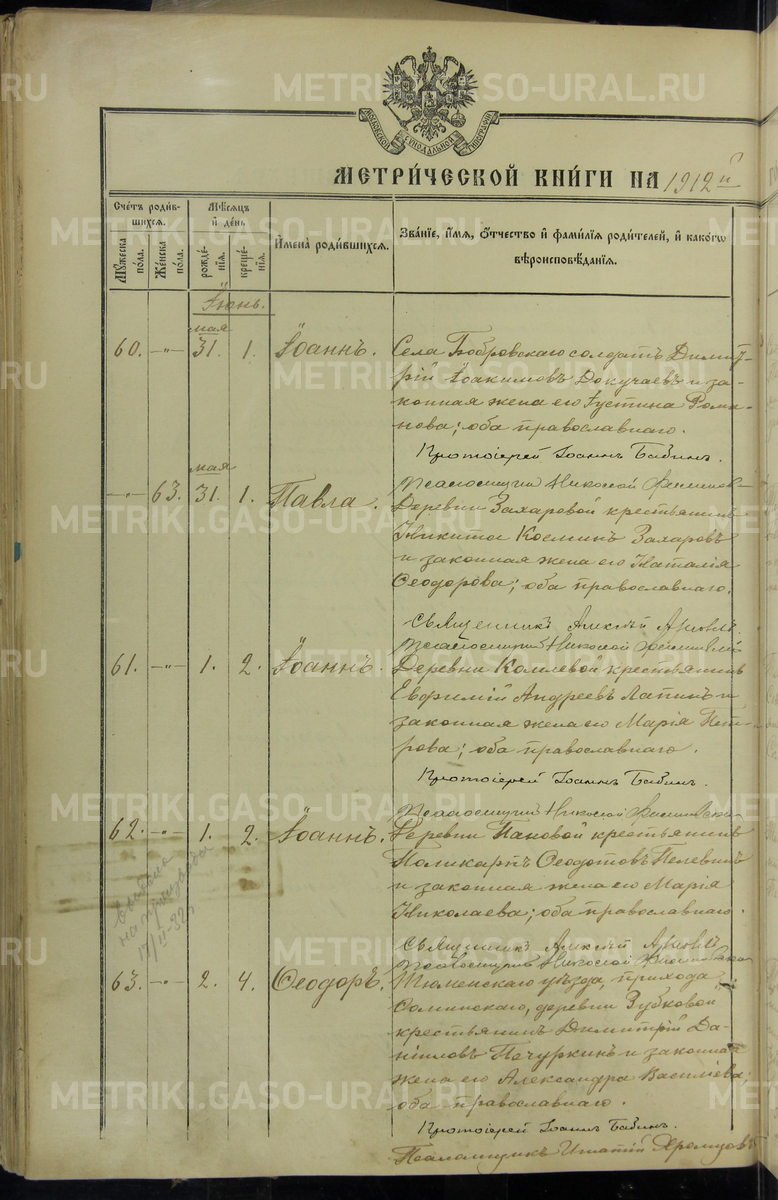 МОСКОВСКОЙ СѴНОДАЛЬНОЙ ТИПОГРАФІИ
МЕТРИ́ЧЕСКОЙ КНИ́ГИ НА 1912 й
Сче́тъ роди́вшихся.
Мѣ́сяцъ и҆ де́нь
Мꙋ́жеска по́ла.
Же́нска по́ла.
рожде́нїя.
креще́нїя.
И҆мена̀ роди́вшихся.
Зва́нїе, и҆́мя, ѻ҆́тчество и҆ фами́лїя роди́телей, и҆ како́гѡ вѣроисповѣ́данїя.
Іюнь.
мая
60. -"- 31. 1. Іоаннъ.
Села Бобровскаго солдатъ Димит-
рій Іоакимовъ Докучаевъ и за-
конная жена его Іустина Рома-
нова; оба православнаго.
Протоіерей Іоаннъ Бабинъ.
Псаломщикъ Николай
мая
-"- 63. 31. 1. Павла.
Деревни Захаровой крестьянинъ
Никита Косминъ Захаровъ
и законная жена его Наталія
Ѳеодорова; оба православнаго.
Священникъ Алексій
Псаломщикъ Николай
61. -"- 1. 2. Іоаннъ.
Деревни крестьянинъ
Евфимій Андреевъ Лапинъ и
законная жена его Марія Пет-
рова; оба православнаго.
Протоіерей Іоаннъ Бабинъ.
Псаломщикъ Николай
62. -"- 1. 2. Іоаннъ.
Деревни Пановой крестьянинъ
Поликарпъ Ѳеодотовъ Пелевинъ
и законная жена его Марія
Николаева; оба православнаго.
Священникъ Алексій
Псаломщикъ Николай
17/II-32
63. -"- 2. 4. Ѳеодоръ.
Тюменскаго уѣзда, прихода
деревни Зубковой
крестьянинъ Димитрій Да-
ніиловъ Печуркинъ и законная
жена его Александра Василіева;
оба православнаго.
Протоіерей Іоаннъ Бабинъ.
Псаломщикъ
METRIKI.GASO-URAL.RU